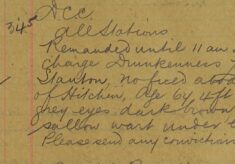 345 DCC
All Stations
Remanded until 11 am
charge Drunkenness
Stanton, no fixed abod
of Hitchen, age 64 4ft
grey eyes. dark brown
sallow wart under
Please send any conviction